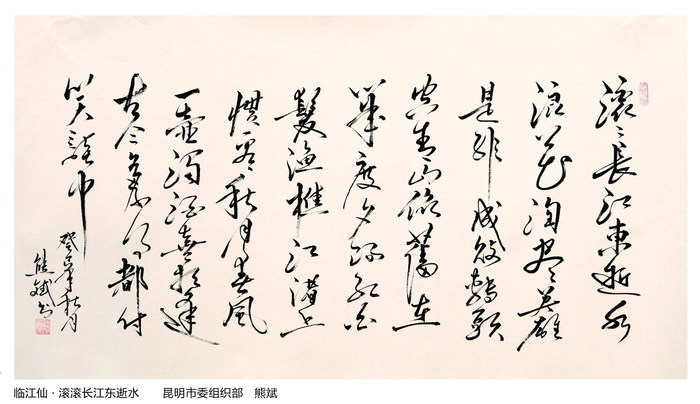 滚滚長江東逝水
浪花淘尽英雄
是非成敗轉頭
空青山依舊在
幾度夕阳红白
髮漁樵江渚上
惯看秋月春風
一壺濁酒喜相逢
古今多少事都付
笑談中
癸巳年秋月
熊斌书
临江仙·滚滚长江东逝水 昆明市委组织部 熊斌